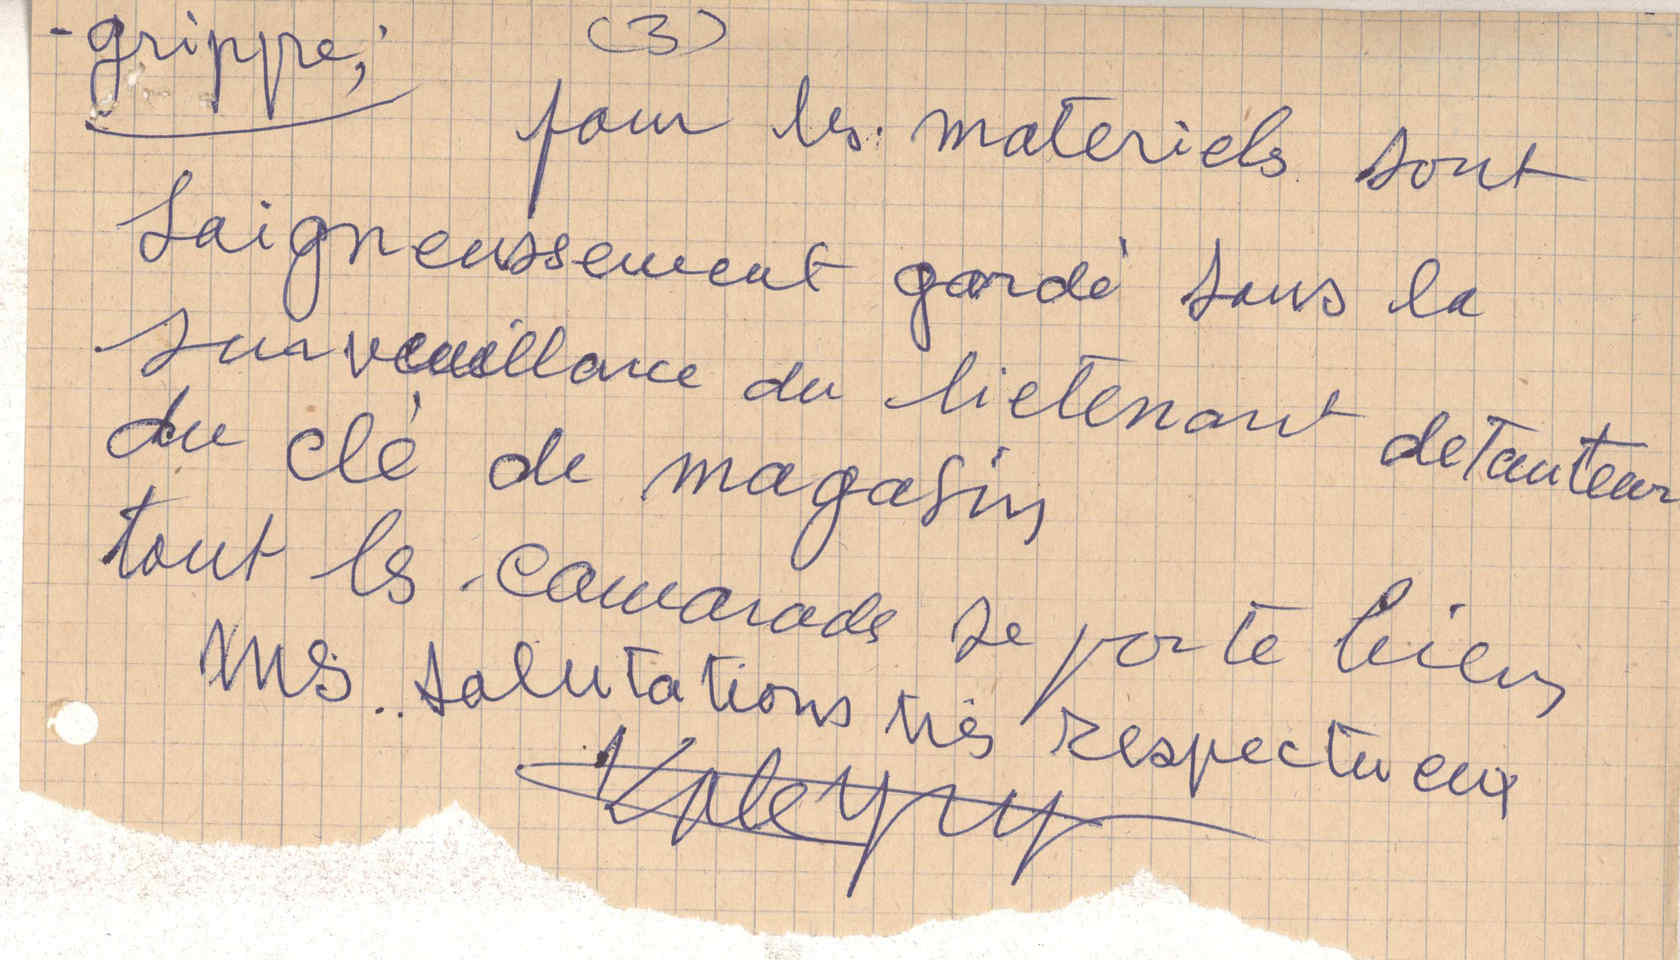 -grippe; (3)
pour les materiels sont
saigneussement gardé sous la
surveuillance du lietenant detauteur
du clé de magasin
tout les camarads se porte bien
mes salutations très respectueux